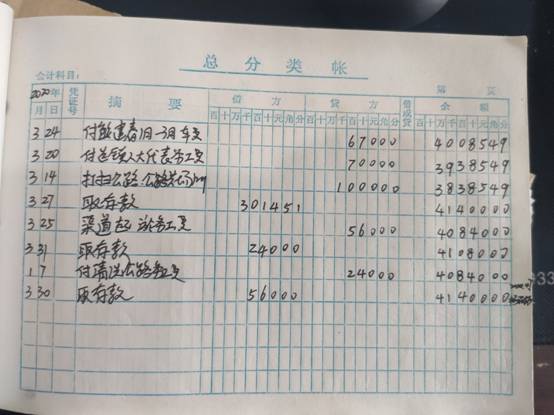 总分类帐
会计科目：
第 页
2020年 凭证号 摘要 借方 贷方 借或贷 余额
月 日 百十万千百十元角分 百十万千百十元角分 百十万千百十元角分
3 24 付 春1月-3月车 67000 4008549
3 20 付 镇人大代表 工 70000 3938549
3 14 打扫公路 100000 3838549
3 27 取存款 301451 4140000
3 25 渠道 工 56000 4084000
3 31 取存款 24000 4108000
1 7 付清洗公路 工 24000 4084000
3 30 取存款 56000 4140000